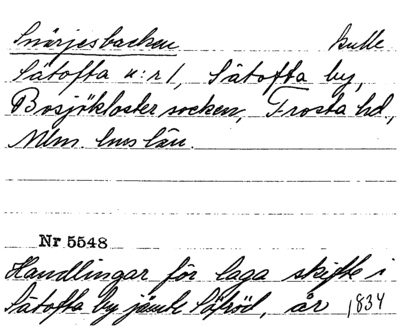 Snärjesbacken kulle
Sätofta n:r 1, Sätofta by,
Bosjökloster socken, Frosta hd,
Mlm. hus län.
Nr 5548
Handlingar för laga skifte i
Sätofta by jämte , år 1834